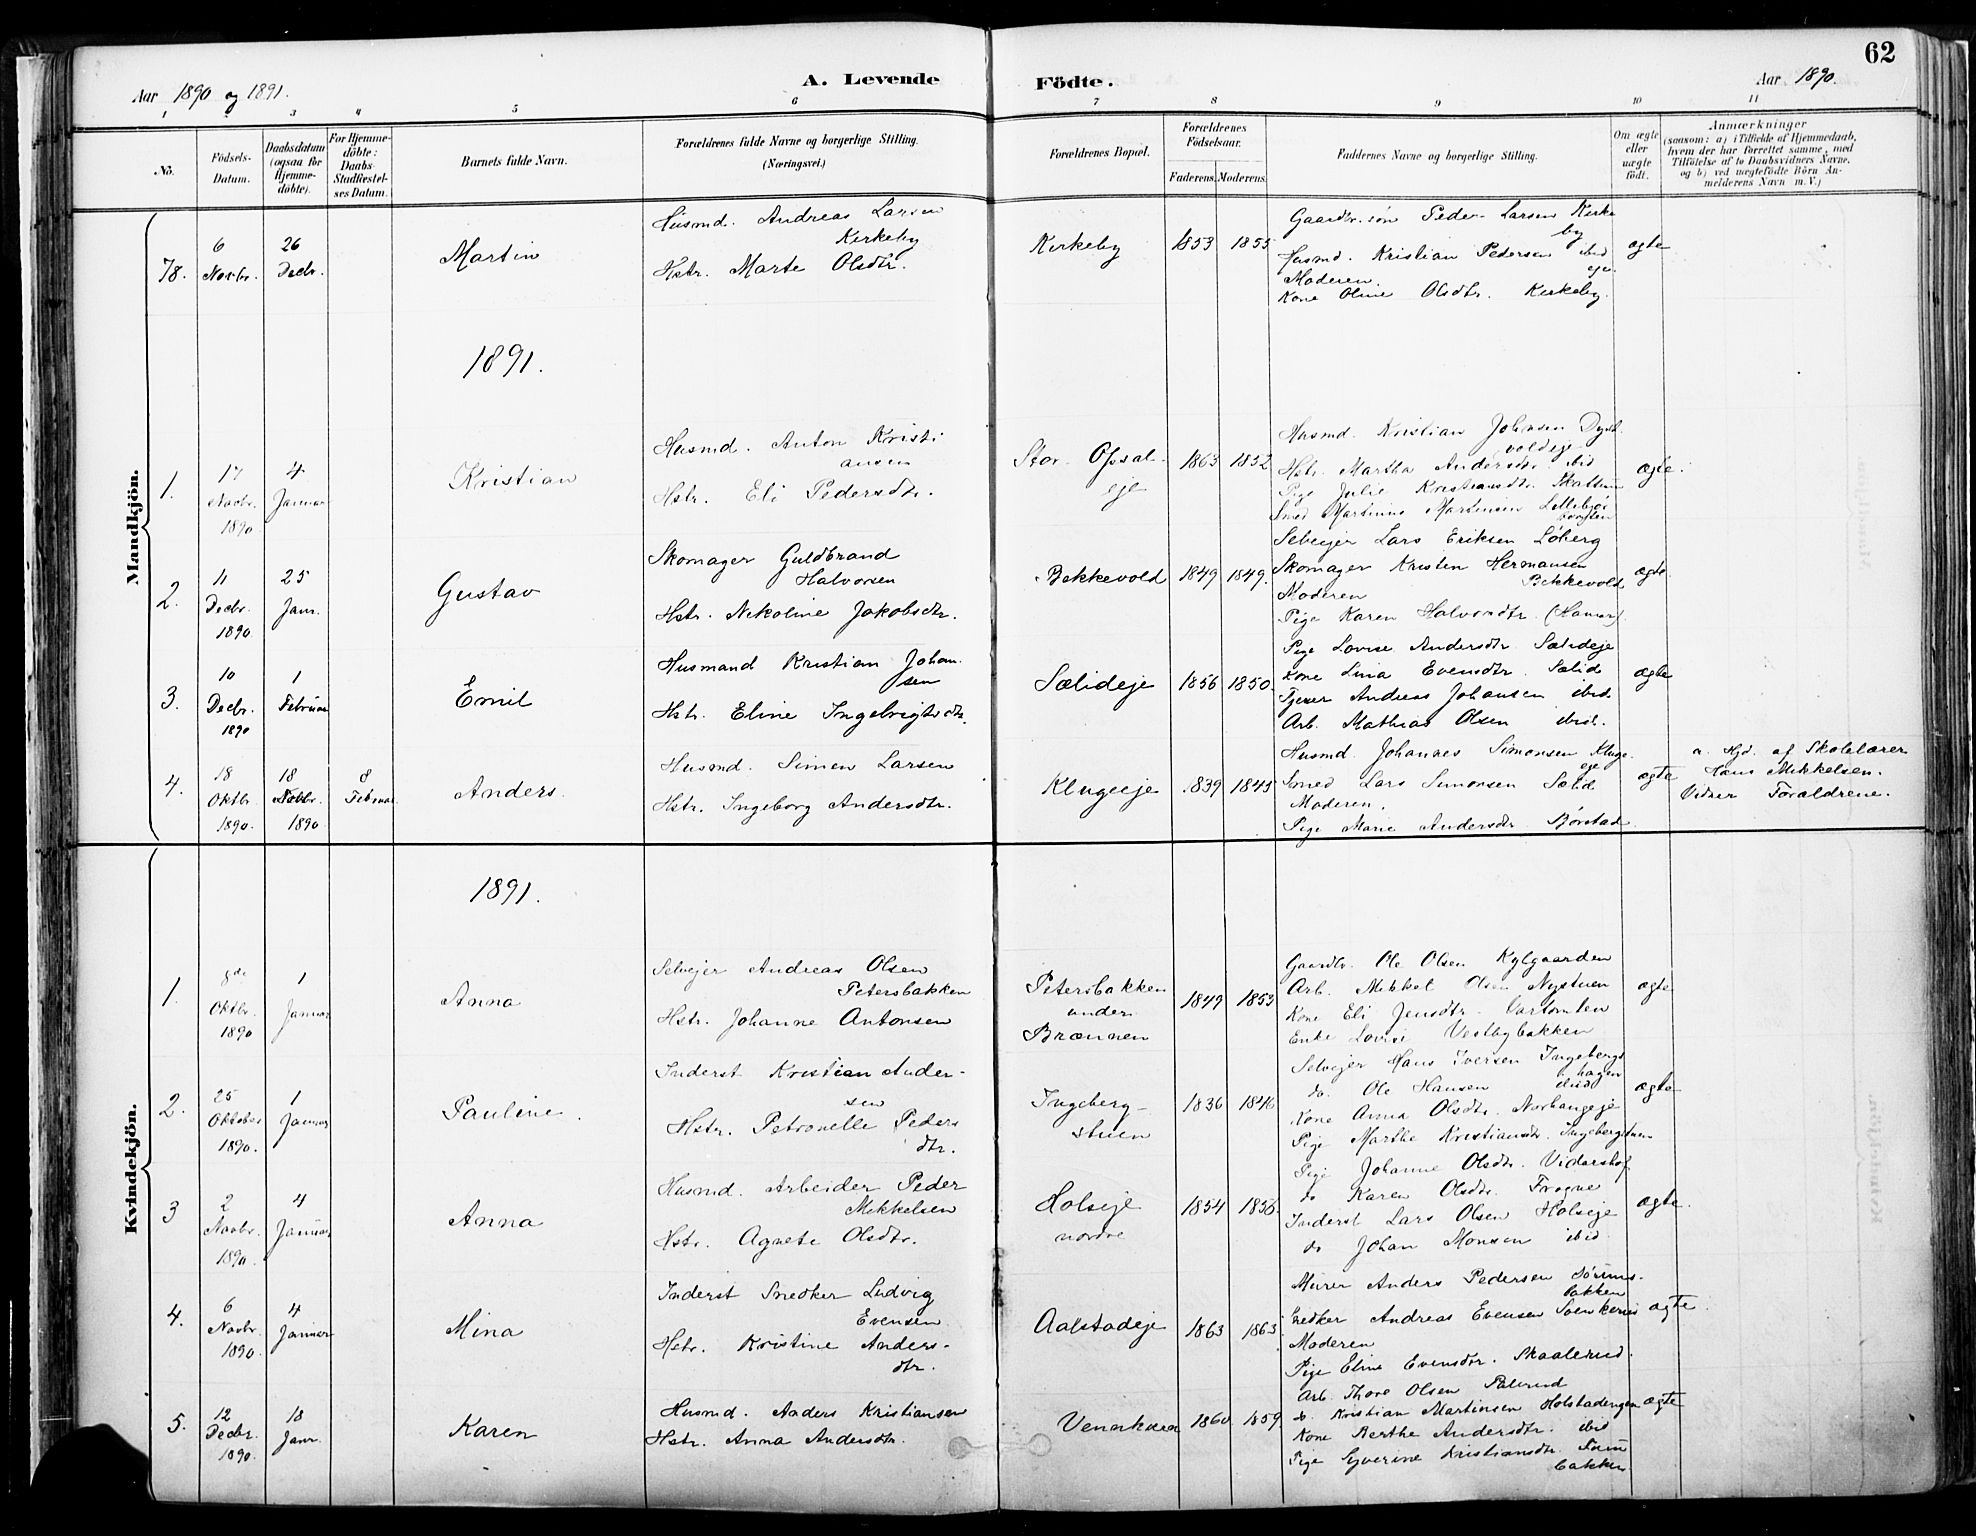 62
Aar 1890 og 1891.
A. Levende Födte.
Aar 1890.
1 2 3 4 5 6 7 8 9 10 11
No.
Födsels-
Datum.
Daabsdatum
(ogsaa for
Hjemme-
döbte).
For Hjemme-
döbte:
Daabs-
Stadfæstel-
ses Datum.
Barnets fulde Navn.
Forældrenes fulde Navne og borgerlige Stilling.
(Næringsvei.)
Forældrenes Bopæl.
Forældrenes
Födselsaar.
Faderens. Moderens.
Faddernes Navne og borgerlige Stilling.
Om ægte
eller
uægte
födt.
Anmærkninger
(saasom: a) i Tilfælde af Hjemmedaab,
hvem der har forrettet samme, med
Tilföielse af to Daabsvidners Navne,
og b) ved uægtefödte Börn An-
melderens Navn m. V.)
Mandkjön.
78.
6
Novbr.
26
Decbr.
Martin
Husmd. Andreas Larsen
Kirkeby
Hstr. Marte Olsdtr.
Kirkeby
1853 1855
Gaardbr.søn Peder Larsen Kirke
by
Husmd. Kristian Pedersen ibid
eje
Moderen.
Kone Oline Olsdtr. Kirkeby.
ægte
1891.
1.
17
Novbr.
1890
4
Januar
Kristian
Husmd. Anton Kristi
ansen
Hstr. Eli Pedersdtr.
Stor. Opsal-
eje
1863 1852
Husmd. Kristian Johnsen Dyst
voldeje
Hstr. Martha Andersdtr. ibid
Pige Julie Kristiansdtr. Skattum
Smed Martinus Martinsen Lillebjør
ægte.
2.
11
Decbr.
1890
25
Janr.
Gustav
Skomager Guldbrand
Halvorsen
Hstr. Nikoline Jakobsdtr.
Bekkevold
1849 1849.
Selveier Lars Eriksen Løberg
Skomager Kristen Hermansen
Bekkevold
Moderen
Pige Karen Halvorsdtr. (Hamar).
ægte
3.
10
Decbr.
1890
1
Februar
Emil
Husmand Kristian Johan-
sen
Hstr. Eline Ingebrigtsdtr.
Sælideje
1856 1850.
Pige Lovise Andersdtr. Sælideje
Kone Lina Evensdtr. Sælid
Tjener Andreas Johansen ibid.
Arb. Mathias Olsen ibid.
ægte
4.
18
Oktbr.
1890.
18
Novbr.
1890
8
Februar.
Anders.
Husmd. Simen Larsen
Hstr. Ingeborg Andersdtr.
Klugeeje
1839 1845
Husmd. Johannes Simonsen Kluge-
eje
Smed Lars Simonsen Sælid
Moderen.
Pige Marie Andersdtr. Børstad
ægte
a. Hjd. af Skolelærer
Hans Mikkelsen.
Vidner Forældrene.
Kvindekjön.
1891.
1.
8de
Oktbr.
1890
1
Januar
Anna
Selvejer Andreas Olsen
Petersbakken
Hstr. Johanne Antonsen
Petersbakken
under
Brænnen
1849 1853
Gaardbr. Ole Olsen Kylgaarden
Arb. Mikkel Olsen Nystuen
Kone Eli Jensdtr.
Enke Lovise Vestbybakken
ægte
2.
25
Oktober
1890.
1
Januar
Pauline.
Inderst Kristian Ander-
sen
Hstr. Petronelle Peders
dtr.
Ingeberg-
stuen
1836 1846
Selvejer Hans Iversen Ingebergs
hagen
do. Ole Hansen ibid
Kone Anna Olsdtr. Norhangeje
Pige Marthe Kristiansdtr. Ingebergstuen
ægte
3
2
Novbr.
1890.
4
Januar
Anna
Husmd. Arbeider Peder
Mikkelsen
Hstr. Agnete Olsdtr.
Holseje
nordre
1854 1856.
Pige Johanne Olsdtr. Vidarshof
do Karen Olsdtr. Frogne
Inderst Lars Olsen Holseje
do Johan Monsen ibid
ægte.
4.
6
Novbr.
1890.
4
Januar
Mina
Inderst Snedker Ludvig
Evensen
Hstr. Kristine Anders-
dtr.
Aalstadeje
1863 1863.
Murer Anders Pedersen Sörums-
bakken
Snedker Andreas Evensen Svenkerud
Moderen
Pige Eline Evensdtr. Skaalerud.
ægte.
5.
12
Decbr.
1890.
18
Janr.
Karen
Husmd. Anders Kristiansen
Hstr. Anna Andersdtr.
Vennkaea
1860 1859
Arb. Thore Olsen Palerud
do. Kristian Martinsen Holstadengen
Kone Berthe Andersdtr. ibid
Pige Syverine Kristiansdtr.
bakken
ægte